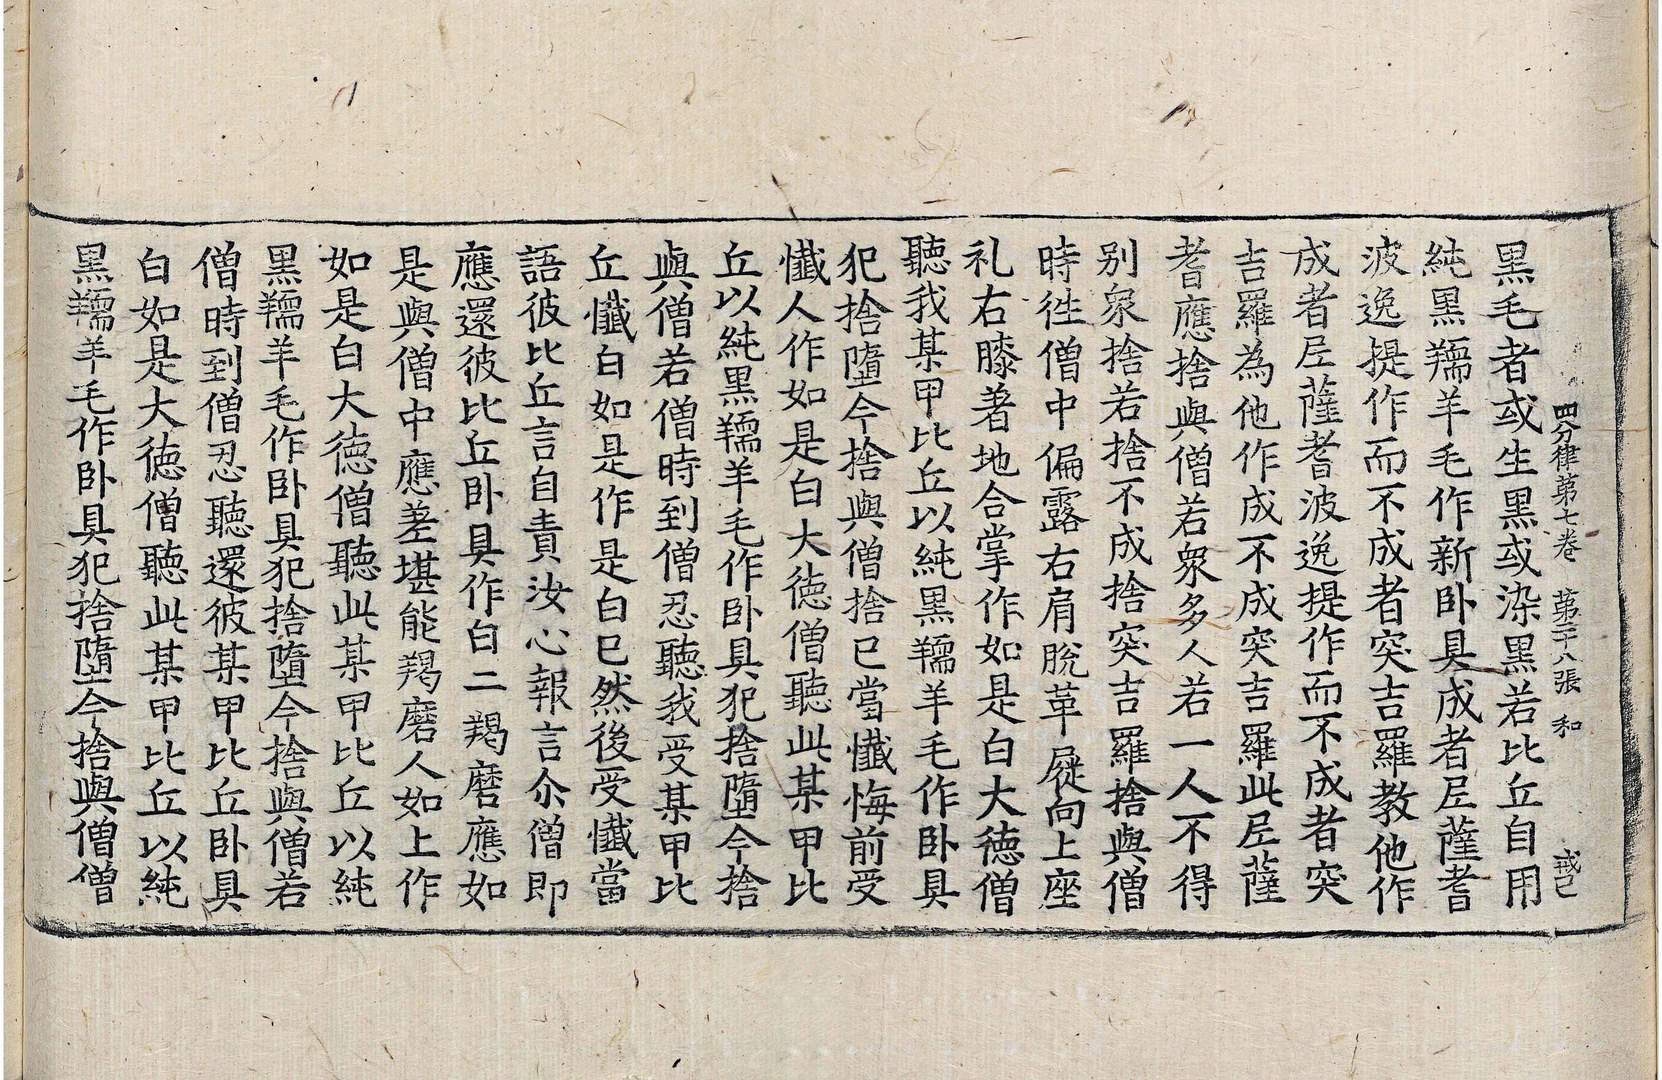 四分律第七卷 第二十八張 和 戒己
黑毛者或生黑或染黑若比丘自用
純黑羺羊毛作新卧具成者𡰱薩耆
波逸提作而不成者突吉羅教他作
成者𡰱薩耆波逸提作而不成者突
吉羅為他作成不成突吉羅此𡰱薩
耆應捨與僧若衆多人若一人不得
别衆捨若捨不成捨突吉羅捨與僧
時徃僧中偏露右肩脫革屣向上座
礼右膝著地合掌作如是白大德僧
聽我某甲比丘以純黑羺羊毛作卧具
犯捨墮今捨與僧捨已當懺悔前受
懺人作如是白大德僧聽此某甲比
丘以純黑羺羊毛作卧具犯捨墮今捨
與僧若僧時到僧忍聽我受某甲比
丘懺白如是作是白已然後受懺當
語彼比丘言自責汝心報言尒僧即
應還彼比丘卧具作白二羯磨應如
是與僧中應差堪能羯磨人如上作
如是白大德僧聽此某甲比丘以純
黑羺羊毛作卧具犯捨墮今捨與僧若
僧時到僧忍聽還彼某甲比丘卧具
白如是大德僧聽此某甲比丘以純
黑羺羊毛作卧具犯捨墮今捨與僧僧